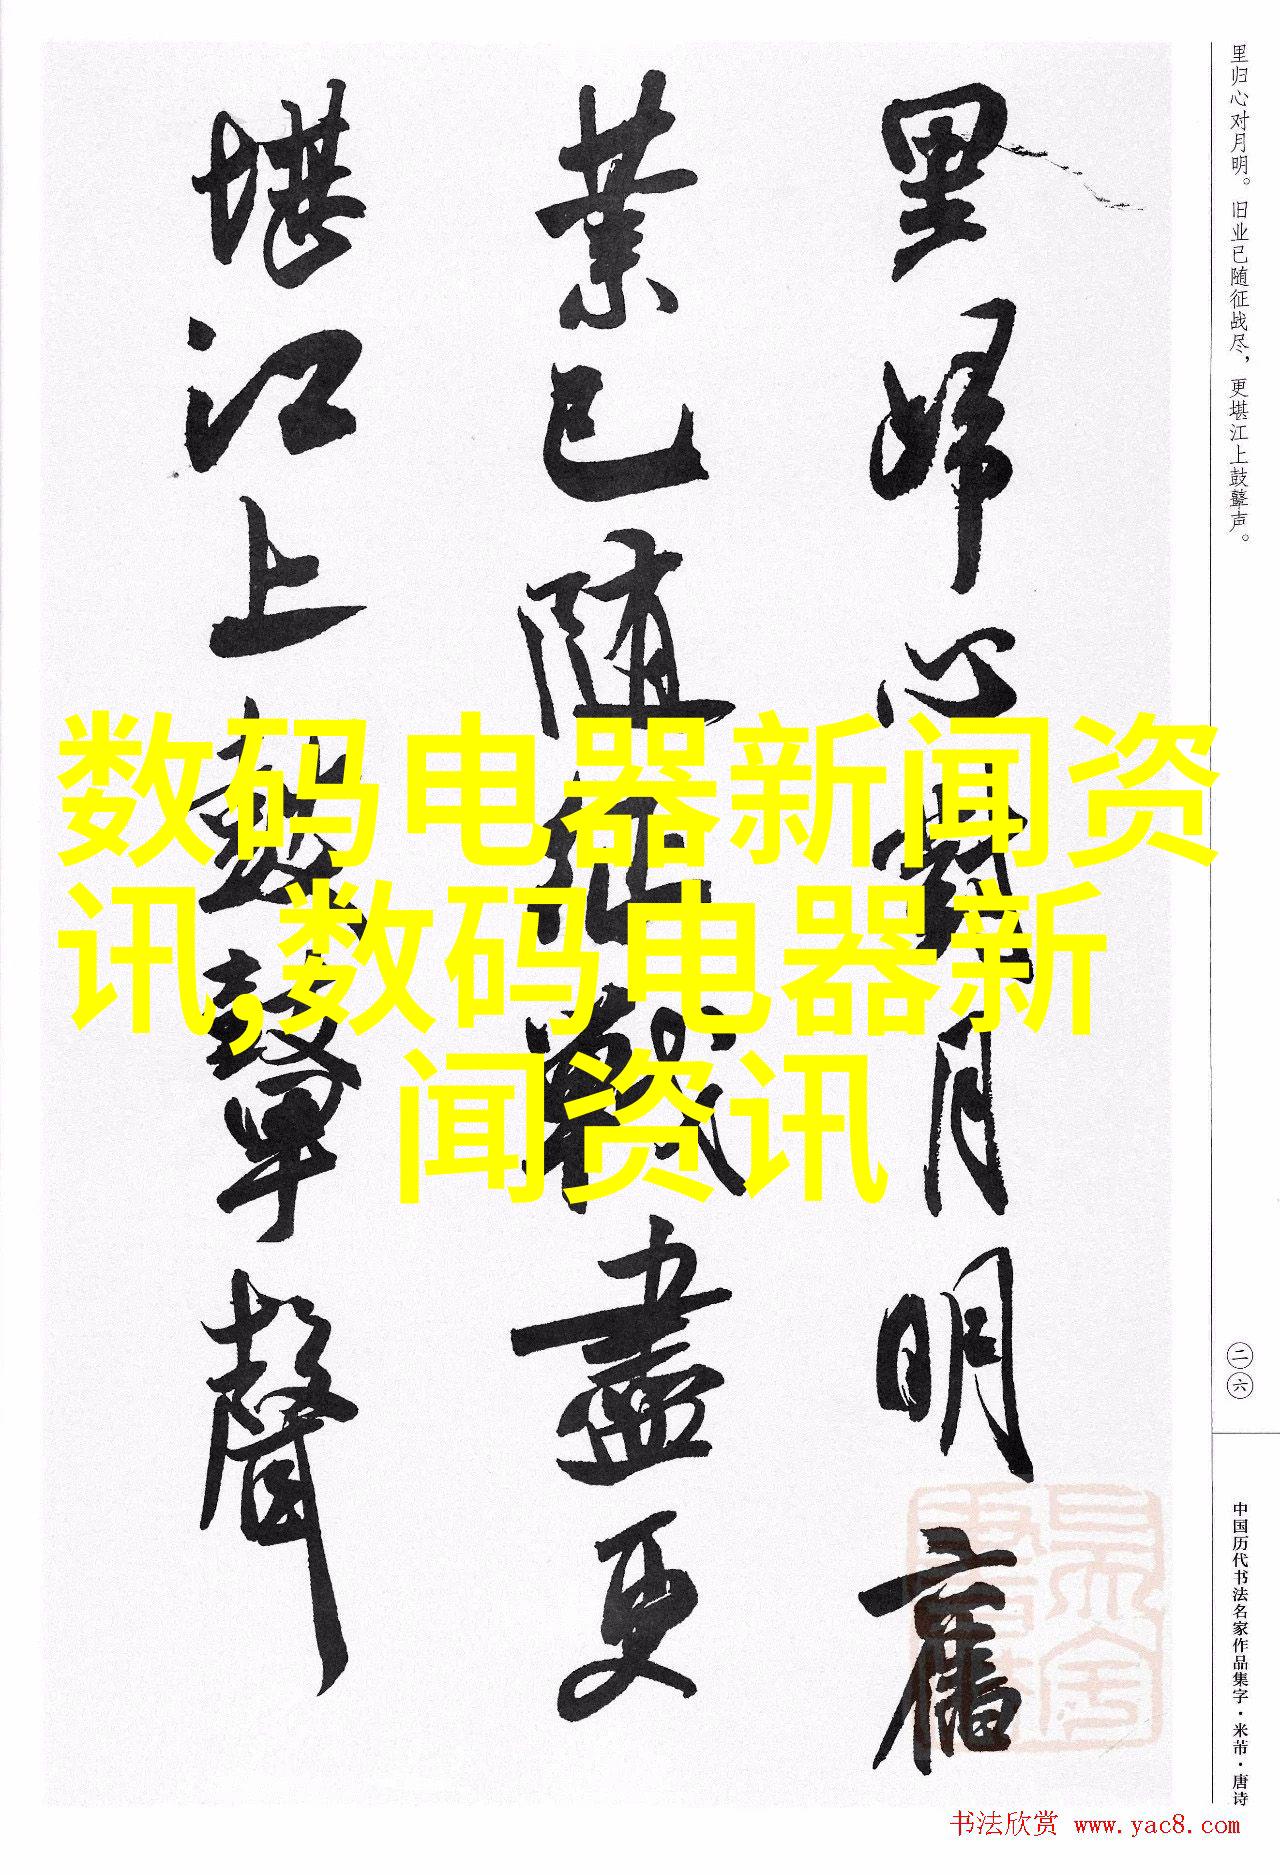 里归心对月明。旧业已随征战尽，更堪江上鼓鼙声。
里歸心對月明舊
業已隨征戰盡更
堪江上鼓鼙聲
数码电器新闻资
讯,数码电器新
闻资讯
二六
中国历代书法名家作品集字·米芾·唐诗
书法欣赏 www.yac8.com